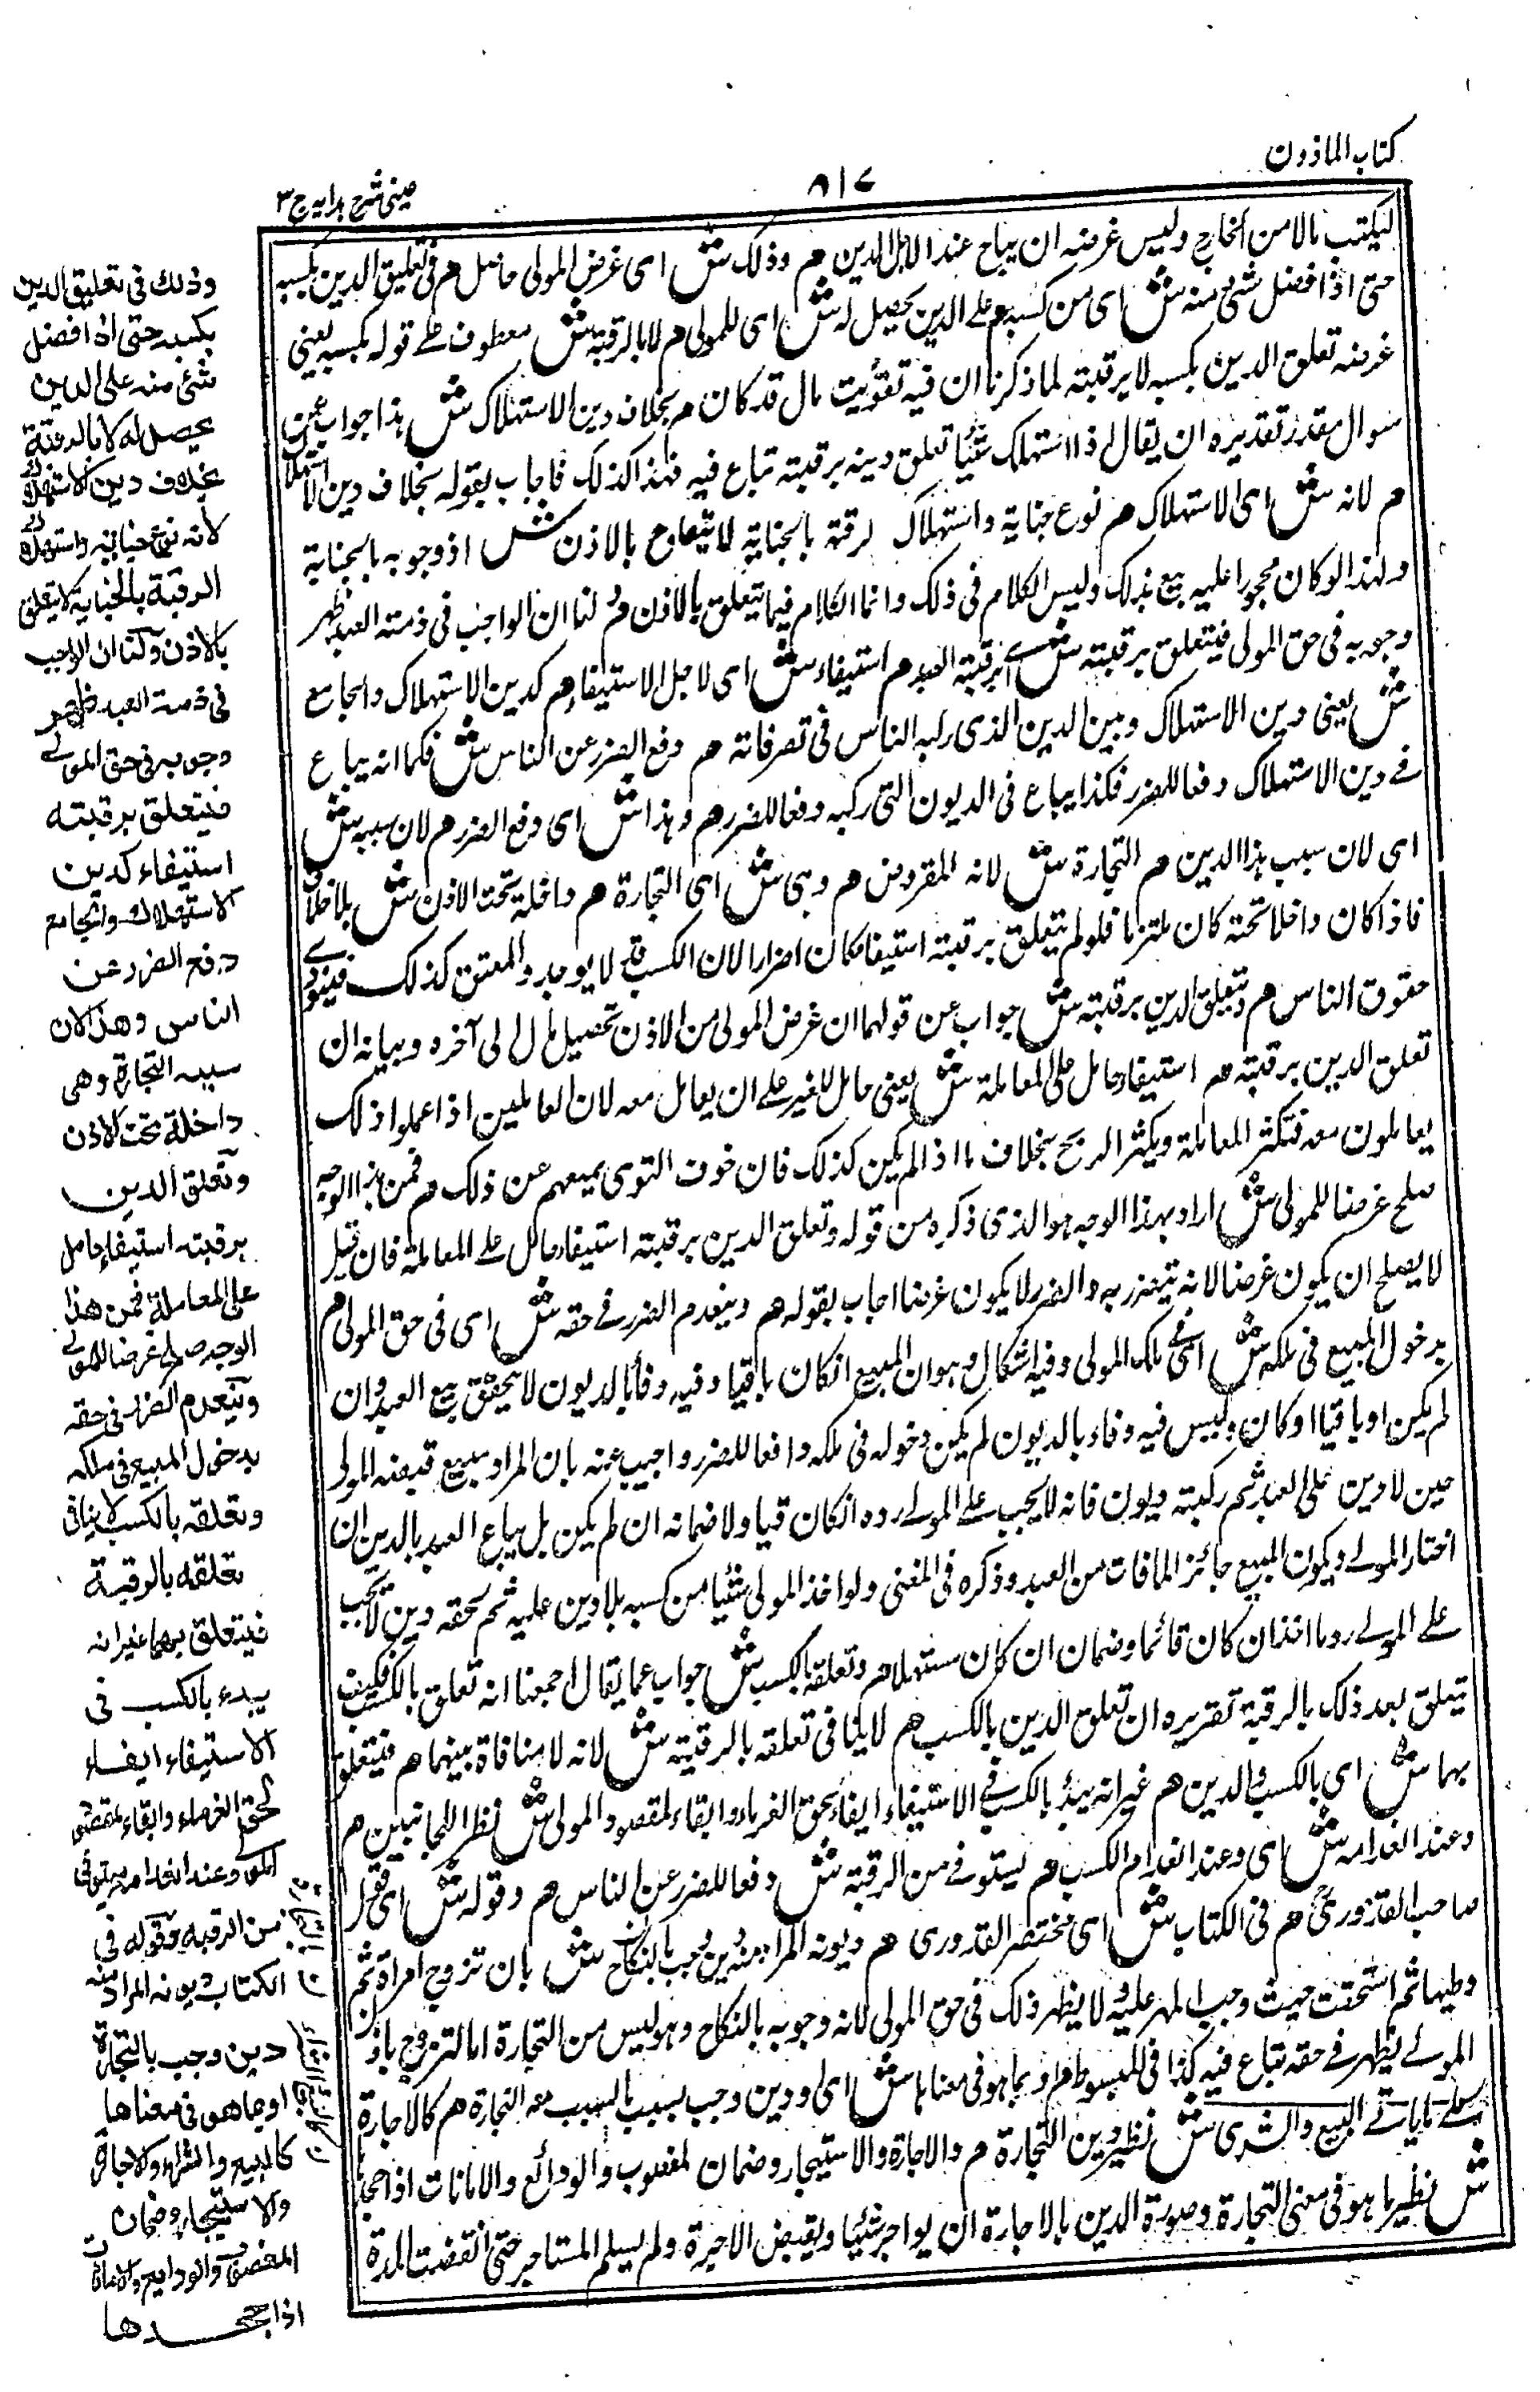 كتاب الماذون
٨١٧
عينى شرح هدايه ج ٣
ليكتب مالا من الخارج وليس غرضه ان يباح عند الاهل الدين م وذلك ش اى غرض المولى حاصل م فى تعليق الدين بكسبه
حتى اذا فضل شئ منه ش اى من كسبه م على الدين يحصل له ش اى للمولى م لا بالرقبة ش معطوف على قوله بكسبه يعنى
غرضه تعلق الدين بكسبه لا برقبته لما ذكرنا ان فيه تفويت مال قد كان م بخلاف دين الاستهلاك ش هذا جواب عن
سوال مقدر تقديره ان يقال اذا استهلك شيئا تعلق دينه برقبته تباع فيه فهذا كذلك فاجاب بقوله بخلاف دين الاستهلاك
م لانه ش اى الاستهلاك م نوع جناية واستهلاك الرقبة بالجناية لا يتعلق بالاذن ش اذ وجوبه بالجناية
ولهذا لو كان محجورا عليه بيع بذلك وليس الكلام فى ذلك وانما الكلام فيما يتعلق بالاذن م ولنا ان الواجب فى ذمته العبد ظهر
وجوبه فى حق المولى فيتعلق برقبته ش اى برقبة العبد م استيفاء ش اى لاجل الاستيفاء م كدين الاستهلاك والجامع
ش يعنى دين الاستهلاك وبين الدين الذى ركبه الناس فى تصرفاته م دفع الضرر عن الناس ش فكما انه يباع
فى دين الاستهلاك دفعا للضرر فكذا يباع فى الديون التى ركبه دفعا للضرر م وهذا ش اى دفع الضرر م لان سببه ش
اى لان سبب هذا الدين م التجارة ش لانه المفروض م وهى ش اى التجارة م داخلة تحت الاذن ش بلا خلاف
فاذا كان داخلا تحته كان ملتزما فلو لم يتعلق برقبته استيفاء كان اضرارا لان الكسب قد لا يوجد والعتق كذلك فيتوى
حقوق الناس م وتعلق الدين برقبته ش جواب عن قولهما ان غرض المولى من الاذن تحصيل مال الى آخره وبيانه ان
تعلق الدين برقبته م استيفاء حامل على المعاملة ش يعنى حامل للغير على ان يعامل معه لان العاملين اذا علموا ذلك
يعاملون معه فتكثر المعاملة ويكثر الربح بخلاف ما اذا لم يكن كذلك فان خوف التوى يمنعهم عن ذلك م فمن هذا الوجه
صلح غرضا للمولى ش اراد بهذا الوجه هو الذى ذكره من قوله وتعلق الدين برقبته استيفاء حامل على المعاملة فان قيل
لا يصلح ان يكون غرضا لانه يتضرر به والضرر لا يكون غرضا اجاب بقوله م وينعدم الضرر فى حقه ش اى فى حق المولى م
بدخول المبيع فى ملكه ش اى فى ملك المولى وفيه اشكال وهو ان المبيع ان كان باقيا وفيه وفاء بالديون لا يتحقق بيع العبد وان
لم يكن باقيا او كان وليس فيه وفاء بالديون لم يكن دخوله فى ملكه دافعا للضرر واجيب عنه بان المراد مبيع قبضه المولى
حين لا دين على العبد ثم ركبته ديون فانه لا يجب على المولى رده ان كان قيا ولا ضمانه ان لم يكن بل يباع العبد بالدين ان
اختار المولى ويكون المبيع جائز المافات من العبد وذكره فى المغنى ولو اخذ المولى شيئا من كسبه بلا دين عليه ثم لحقه دين لا يجب
على المولى رد ما اخذ ان كان قائما وضمان ان كان مستهلكا م وتعلقه بالكسب ش جواب عما يقال اجمعنا انه تعلق بالكسب فكيف
يتعلق بعد ذلك بالرقبة تقريره ان تعلق الدين بالكسب م لا ينافى تعلقه بالرقبة ش لانه لا منافاة بينهما م فيتعلق
بهما ش اى بالكسب والدين م غير انه يبدأ بالكسب فى الاستيفاء ايفاء لحق الغرماء وابقاء لمقصود المولى ش نظرا للجانبين م
وعند انعدامه ش اى وعند انعدام الكسب م يستوفى من الرقبة ش دفعا للضرر عن الناس م وقوله ش اى قول
صاحب القدورى م فى الكتاب ش اى مختصر القدورى م ديونه المراد منه دين وجب بالنكاح ش بان تزوج امراة ثم
وطيها ثم استحقت حيث وجب المهر عليه ولا يظهر ذلك فى حق المولى لانه وجوبه بالنكاح وهو ليس من التجارة اما التزوج باذن
المولى يظهر فى حقه تباع فيه كذا فى المبسوط م او بما هو فى معناها ش اى ودين وجب بسبب مع التجارة م كالاجارة
على ما ياتى البيع والشرى ش نظير دين التجارة م والاجارة والاستيجار وضمان المغصوب والودائع والامانات اذا جحدها
ش نظير ما هو فى معنى التجارة وصورة الدين بالاجارة ان يواجر شيئا ويقبض الاجرة ولم يسلم المستاجر حتى انقضت المدة
وذلك فى تعليق الدين
بكسبه حتى اذا فضل
شئ منه على الدين
يحصل له لا بالرقبة
بخلاف دين الاستهلاك
لانه نوع جناية واستهلاك
الرقبة بالجناية لا يتعلق
بالاذن ولنا ان الواجب
فى ذمة العبد ظهر
وجوبه فى حق المولى
فيتعلق برقبته
استيفاء كدين
الاستهلاك والجامع
دفع الضرر عن
الناس وهذا لان
سببه التجارة وهى
داخلة تحت الاذن
وتعلق الدين
برقبته استيفاء حامل
على المعاملة فمن هذا
الوجه صلح غرضا للمولى
وينعدم الضرر فى حقه
بدخول المبيع فى ملكه
وتعلقه بالكسب لا ينافى
تعلقه بالرقبة
فيتعلق بهما غير انه
يبدء بالكسب فى
الاستيفاء ايفاء
لحق الغرماء وابقاء لمقصود
المولى وعند انعدامه يستوفى
من الرقبة وقوله فى
الكتاب ديونه المراد منه
دين وجب بالتجارة
او بما هو فى معناها
كالبيع والشراء والاجارة
والاستيجار وضمان
المغصوب والودايع والامانات
اذا جحدها